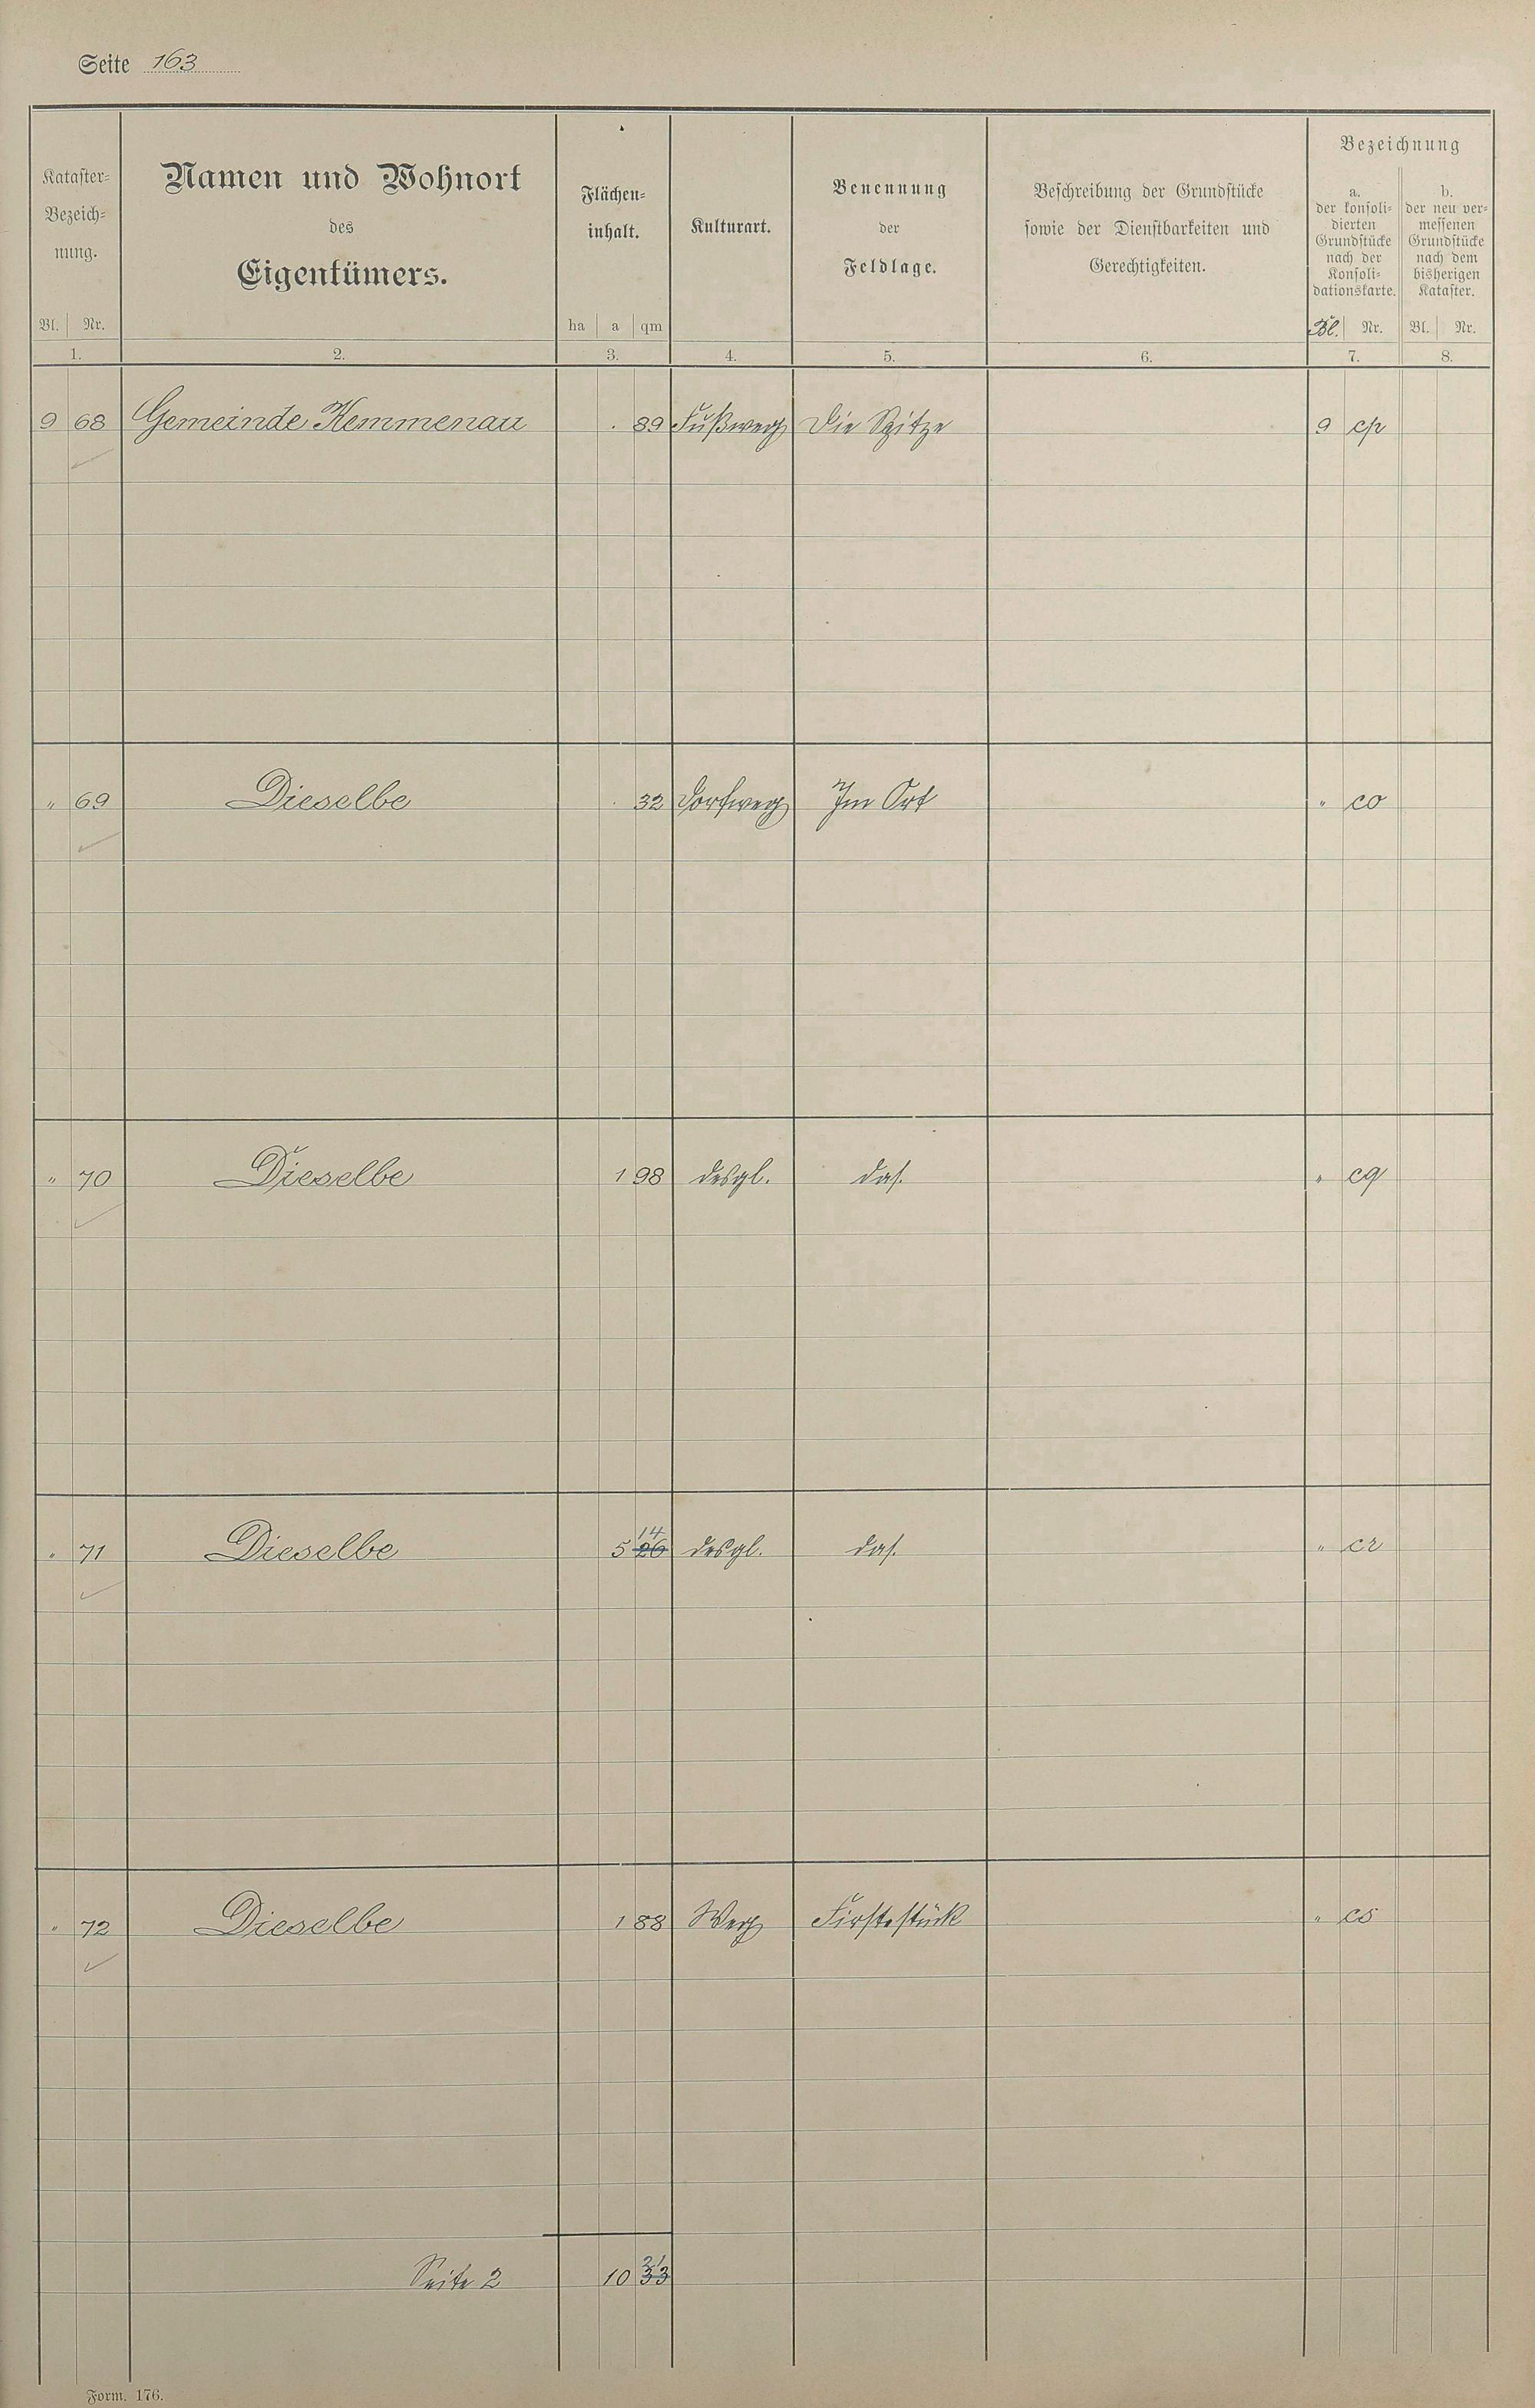 Seite 163
Kataster-
Bezeich-
nung.
Bl. Nr.
1.
Namen und Wohnort
des
Eigentümers.
2.
Flächen-
inhalt.
ha a qm
3.
Kulturart.
4.
Benennung
der
Feldlage.
5.
Beschreibung der Grundstücke
sowie der Dienstbarkeiten und
Gerechtigkeiten.
6.
Bezeichnung
a.
der konsoli-
dierten
Grundstücke
nach der
Konsoli-
dationskarte.
Bl. Nr.
7.
b.
der neu ver-
messenen
Grundstücke
nach dem
bisherigen
Kataster.
Bl. Nr.
8.
9 68 Gemeinde Kemmenau . 89 Fußweg Die Spitze 9 cp
" 69 Dieselbe . 32 Dorfweg Im Ort " co
" 70 Dieselbe 1 98 desgl. das. " cq
14
" 71 Dieselbe 5 26 desgl. das. " cr
" 72 Dieselbe 1 88 Weg Firstestück " cs
21
Seite 2 10 33
Form. 176.